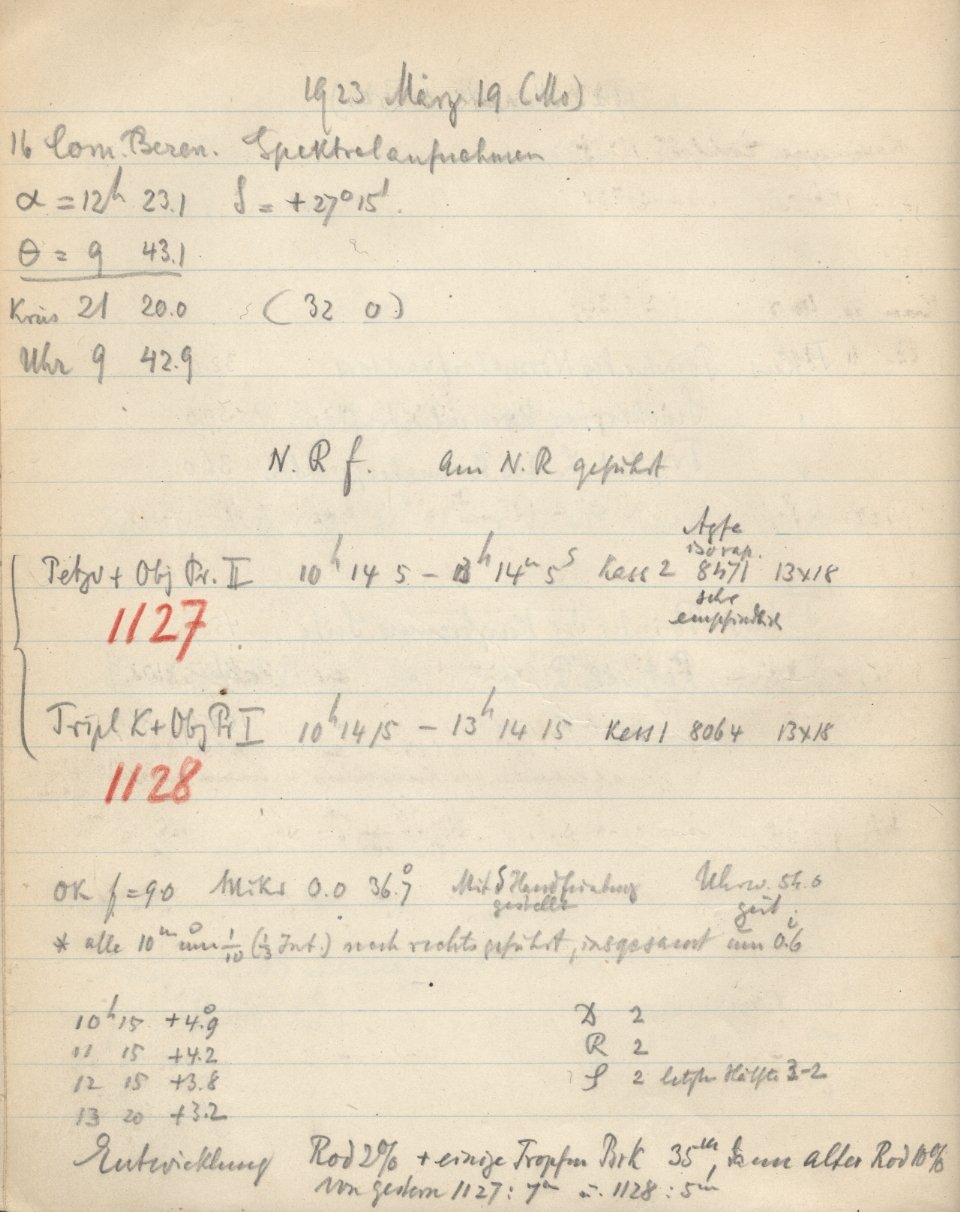 1923 März 19 (Mo)
16 Com. Beren. Spektralaufnahmen
α = 12h 23.1 δ = +27° 15'.
θ = 9 43.1
Kreis 21 20.0 (32 0)
Uhr 9 42.9
N. R f. am N. R geführt
Agfa
isorap.
Petzv + Obj Pr. II 10h 14 5 – 13h 14m 5s Kass 2 8471 13x18
sehr
empfindlich
1127
Tripl K + Obj Pr I 10h 14 15 – 13h 14 15 Kass 1 8064 13x18
1128
OK f = 90 Mikr 0.0 36.°7 Mit δ Uhrw.
gestellt gut
* alle 10m um 1/10 (1/3 Int.) nach rechts geführt, insgesamt um 0.6
10h 15 +4.°9 2
11 15 +4.2 R 2
12 15 +3.8 2 letzte Hälfte 3-2
13 20 +3.2
Entwicklung Rod 2% + einige Tropfen 35m, alter Rod 10%
von gestern 1127: 7m u. 1128: 5m